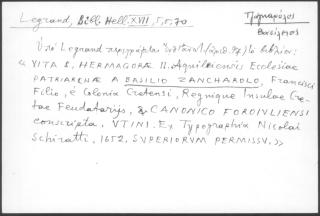 Legrand, Bibl. Hell. XVII, 5, σ. 70.
Τζαγκαρόλος
Βασίλειος
Ὑπὸ Legrand περιγράφεται τὸ βιβλίον:
« VITA S. HERMAGORAE II. Aquileiensis Ecclesiae
PATRIARCHAE A BASILIO ZANCHAROLO, Francisci
Filio, è Colonia Cretensi, Regnique Insulae Cre-
tae Feudatarijs, & CANONICO FOROIULIENSI
conscripta. VTINI. Ex Typographia Nicolai
Schiratti, 1652. SUPERIORVM PERMISSV. »